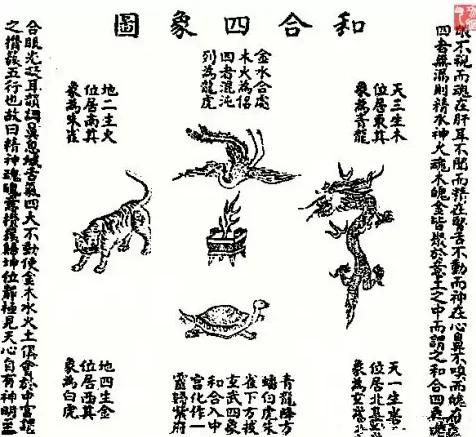 和合四象圖
眼不視而魂在肝耳不聞而精在腎舌不動而神在心鼻不嗅而魄在
四者無漏則精水神火魂木魄金皆聚於意土之中而謂之和合四
天三生木
位居東其
象為青龍
金水合處
木火為侶
四者混沌
列為龍虎
地二生火
位居南其
象為朱雀
天一生
位居北其
象為玄
青龍降方
蟠白虎朱
雀下方披
玄武四象
和合入中
宮化作一
靈歸紫府
地四生金
位居西其
象為白虎
合眼光凝耳韻調鼻息緘舌氣四大不動使金木水火土俱會於中宮謂
之攢簇五行也故曰精神魂魄意攢簇歸坤位靜極見天心自有神明至